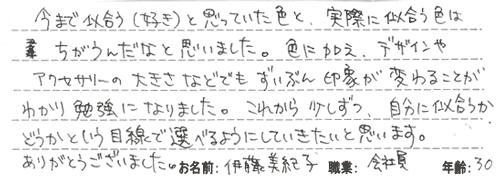 今まで似合う(好き)と思っていた色と、実際に似合う色は
ちがうんだなと思いました。色に加え、デザインや
アクセサリーの大きさなどでもずいぶん印象が変わることが
わかり勉強になりました。これから少しずつ、自分に似合うか
どうかという目線で選べるようにしていきたいと思います。
ありがとうございました。お名前:伊藤美紀子 職業:会社員 年齢:30